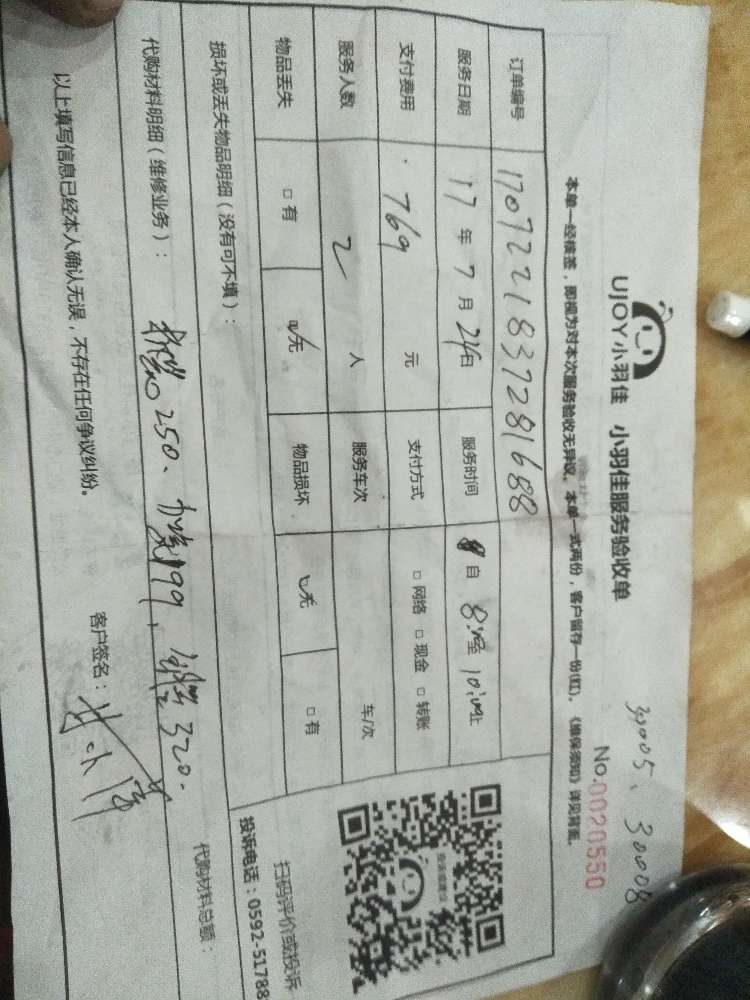 30005、30008
UJOY小羽佳 小羽佳服务验收单
No.0020550
本单一经核签，即视为对本次服务验收无异议。本单一式两份，客户留存一份(红)。《维保须知》详见背面。
订单编号 1707221837281688
服务日期 17 年 7 月 24 日 服务时间 自 8:至 10:止
支付费用 769 元 支付方式 □ 网络 □ 现金 □ 转账
服务人数 2 人 服务车次 车/次
物品丢失 □ 有 ☑无 物品损坏 ☑无 □ 有
损坏或丢失物品明细（没有可不填）：
扫码评价或投诉
投诉电话：0592-51788
代购材料明细（维修业务）： 250、199、320.
代购材料总额：
以上填写信息已经本人确认无误，不存在任何争议纠纷。
客户签名：